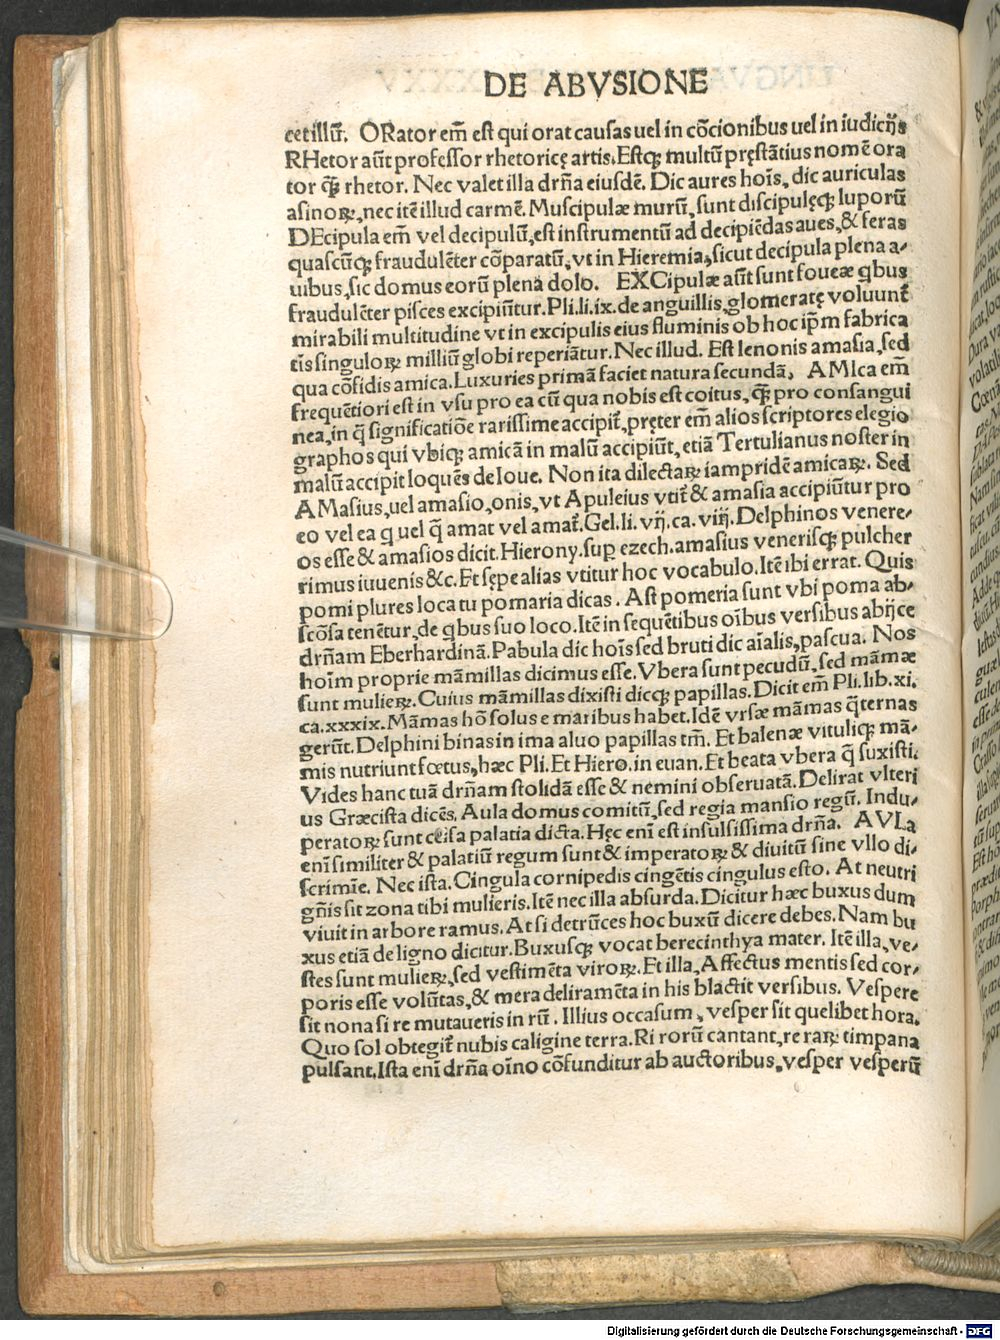 DE ABVSIONE
cetillū. ORator em̄ est qui orat causas uel in cōcionibus uel in iudicijs
RHetor aūt professor rhetoricę artis. Estqȝ multū pręstātius nomē ora
tor qȝ̄ rhetor. Nec valet illa dr̄ña eiusdē. Dic aures hoīs, dic auriculas
asinoꝝ, nec itē illud carmē. Muscipulæ murū, sunt discipulęqȝ luporū
DEcipula em̄ vel decipulū, est instrumentū ad decipiēdas aues, & feras
quascūqȝ fraudulēter cōparatū, vt in Hieremia, sicut decipula plena a⸗
uibus, sic domus eorū plena dolo. EXCipulæ aūt sunt foueæ qbus
fraudulēter pisces excipiūtur. Pli. li. ix. de anguillis, glomeratę voluunt᷑
mirabili multitudine vt in excipulis eius fluminis ob hoc ip̄m fabrica
tis singuloꝝ milliū globi reperiātur. Nec illud. Est lenonis amasia, sed
qua cōfidis amica. Luxuries primā faciet natura secundā, AMIca em̄
frequētiori est in vsu pro ea cū qua nobis est coitus, qȝ̄ pro consangui
nea, in q̄ significatiōe rarissime accipit᷑, pręter em̄ alios scriptores elegio
graphos qui vbiqȝ amicā in malū accipiūt, etiā Tertulianus noster in
malū accipit loquēs de Ioue. Non ita dilectaꝝ iampridē amicaꝝ. Sed
AMasius, uel amasio, onis, vt Apuleius vtit᷑ & amasia accipiūtur pro
eo vel ea q uel q̄ amat vel amat᷑. Gel. li. vij. ca. viij. Delphinos venere⸗
os esse & amasios dicit. Hierony. suꝑ ezech. amasius venerisqȝ pulcher
rimus iuuenis &c. Et sępe alias vtitur hoc vocabulo. Itē ibi errat. Quis
pomi plures loca tu pomaria dicas. Ast pomeria sunt vbi poma ab⸗
scōsa tenētur, de qbus suo loco. Itē in sequētibus oībus versibus abijce
drn̄am Eberhardinā. Pabula dic hoīs sed bruti dic aīalis, pascua. Nos
hoīm proprie māmillas dicimus esse. Vbera sunt pecudū, sed māmæ
sunt mulieꝝ. Cuius māmillas dixisti dicqȝ papillas. Dicit em̄ Pli. lib. xi.
ca. xxxix. Māmas hō solus e maribus habet. Idē vrsæ māmas q̄ternas
gerūt. Delphini binas in ima aluo papillas tm̄. Et balenæ vituliqȝ mā⸗
mis nutriunt fœtus, hæc Pli. Et Hiero. in euan. Et beata vbera q̄ suxisti.
Vides hanc tuā drn̄am stolidā esse & nemini obseruatā. Delirat vlteri
us Græcista dicēs. Aula domus comitū, sed regia mansio regū. Indu⸗
peratoꝝ sunt celsa palatia dicta. Hęc enī est insulsissima drn̄a. AVLa
enī similiter & palatiū regum sunt & imperatoꝝ & diuitū sine vllo di⸗
scrimīe. Nec ista. Cingula cornipedis cingētis cingulus esto. At neutri
gn̄is sit zona tibi mulieris. Itē nec illa absurda. Dicitur hæc buxus dum
viuit in arbore ramus. At si detrūces hoc buxū dicere debes. Nam bu
xus etiā de ligno dicitur. Buxusqȝ vocat berecinthya mater. Itē illa, ve⸗
stes sunt mulieꝝ, sed vestimēta viroꝝ. Et illa, Affectus mentis sed cor⸗
poris esse volūtas, & mera deliramēta in his blactit versibus. Vespere
sit nona si re mutaueris in rū. Illius occasum, vesper sit quelibet hora.
Quo sol obtegit᷑ nubis caligine terra. Ri rorū cantant, re raꝝ timpana
pulsant. Ista enī drn̄a oīno cōfunditur ab auctoribus, vesper vesperū
Digitalisierung gefördert durch die Deutsche Forschungsgemeinschaft - DFG